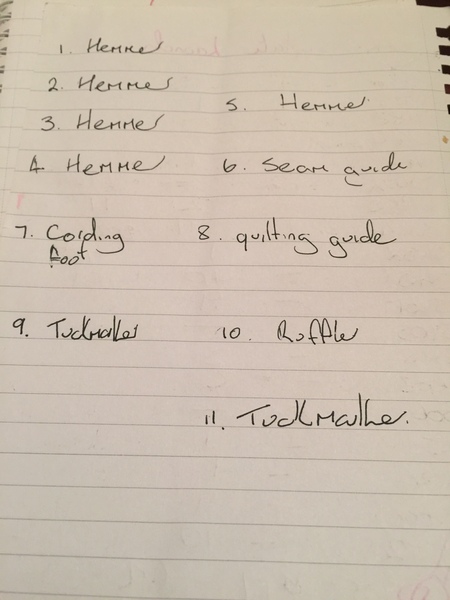 1. Hemmer
2. Hemmer
3. Hemmer
4. Hemmer
5. Hemmer
6. Seam guide
7. Cording foot
8. quilting guide
9. Tuckmarker
10. Ruffler
11. Tuckmarker.